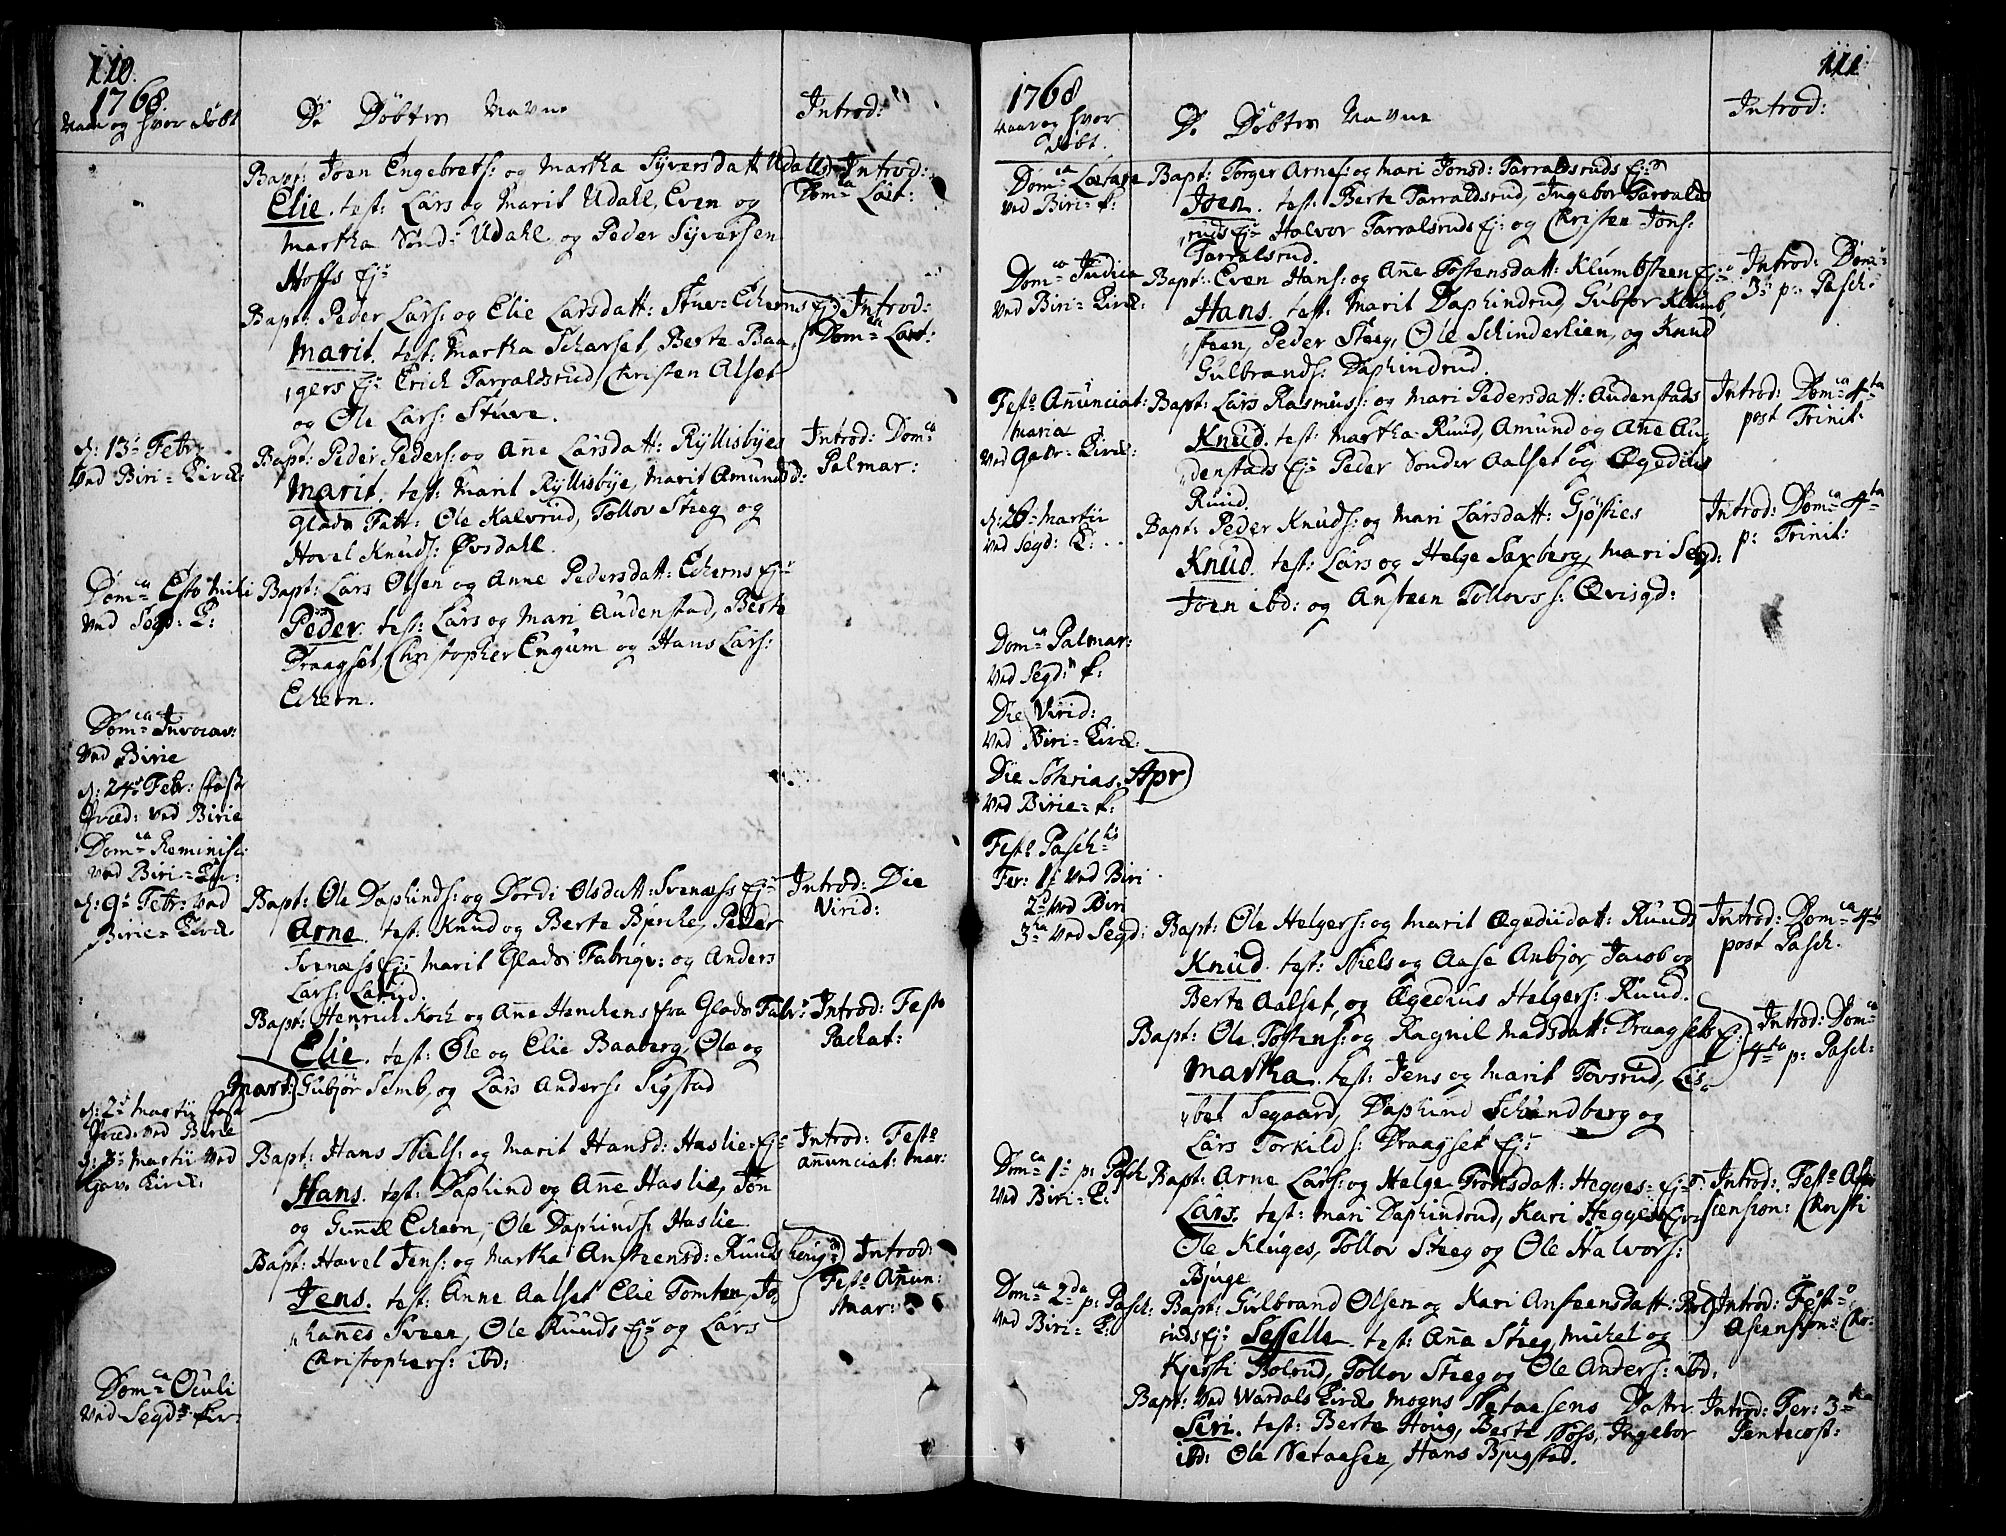 110.
1768.
Naar og hvor døbt
De Døbtes Navne
Introd:
Bapt: Joen Engebrets: og Martha Syversdatt: Udahls
Introd:
Elie. test: Lars og Marit Udahl, Even og
Dom:ca Læt:
Martha Sønd: Udahl og Peder Syversen
Hoffs Ej:
Bapt: Peder Lars: og Elie Larsdatt: Stue-Echerns Ej:
Introd:
Marit. test: Martha Scharset, Berte Baa,
Dom:ca Læt:
"gers Ej: Erich Tarraldsrud, Christen Alset
og Ole Lars: Stuve.
d: 13: Febr.
ved Biri-Kirke:
Bapt: Peder Peders: og Anne Larsdatt: Ryllisbyes
Introd: Dom:ca
Marit. test: Marit Ryllisbye, Marit Amundsd:
Palmar:
Glads Fabr: Ole Kalvrud, Tollov Steeg og
Hovel Knuds: Øvsdahl.
Dom:ca Esto mihi
ved Segd: K:
Bapt: Lars Olsen og Anne Pedersdatt: Echerns Ej:
Peder. test: Lars og Mari Audenstad, Berte
Draagset, Christopher Engum og Hans Lars:
Echern.
Dom:ca Invocav:
ved Birie
d: 24: Febr: faste
Præd: ved Birie
Dom:ca Reminisc:
ved Biri-Kir:
d: 9: Febr: ved
Birie-Kirke
Bapt: Ole Daphinds: og Dordi Olsdatt: Svenæss Ej:
Introd: Die
Arne. test: Knud og Berte Bjerche, Peder
Virid:
Svenæss Ej: Marit Glads Fabriqv: og Anders
Lars: Larud.
Bapt: Henrich Koch og Anne Henchens fra Glads Fabr:
Introd: Festo
Elie. test: Ole og Elie Baaberg, Ole og
Pachat:
Mart:
Gubjør Semb, og Lars Anders: Sigstad
d: 2: Martii faste
Præd: ved Birie
d: 3: Martii ved
Gav. Kirke:
Bapt: Hans Niels: og Marit Hansd: Haslie-Ej:
Introd: Festo
Hans. test: Daphind og Anne Haslie, Jon
annunciat: Mar:
og Gunnel Echern, Ole Daphinds: Haslie
Bapt: Havel Jens: og Martha Ansteensd: Ruuds
Introd:
Jens. test: Anne Aalset Elie Tomten, Jo,
Festo Anun:
"hannes Sveen, Ole Ruuds Ej: og Lars
Mar:
Christophers: ibd:
Dom:ca Oculi
ved Segd: Kir:
111.
1768
Naar og hvor
døbt.
De Døbtes Navne
Introd:
Dom:ca Lætare
ved Biri-K:
Bapt: Torger Arnes: og Mari Jonsd: Tarraldsruds Ej:
Joen. test: Berte Tarraldsrud, Ingebor Tarralds
"ruds Ej: Halvor Tarralsruds Ej: og Christen Jons:
Tarralsrud.
Dom:ca Judica
ved Biri-Kirke:
Bapt: Even Hans: og Anne Tostensdatt: Klumbsteen Ej:
Introd: Dom:
Hans. test: Marit Daphindrud, Gubjor Klumb,
3: p: Pasch:
"steen, Peder Steeg, Ole Schinderlien, og Knud
Gulbrands: Daphindrud.
Festo Annunciat:
Maria
ved Gabr-Kirke:
Bapt: Lars Rasmuss: og Mari Pedersdatt: Audenstads
Introd: Dom:ca 4:ta
Knud. test: Martha Ruud, Amund og Anne Au,
post Trinit:
"denstads Ej: Peder Sønder Aalset og Ægedius
Ruud.
d: 26: Martii
ved Segd: K:
Bapt: Peder Knuds: og Mari Larsdatt: Gjøsties
Introd: Dom:ca 4:ta
Knud. test: Lars og Helge Saxberg, Mari Segd:
p: Trinit:
Joen ibd: og Ansteen Tollovs: Qvisgd:
Dom:ca Palmar:
ved Segd: K:
Die Virid:
ved Biri-Kirke:
Die Soterias. Apr
ved Birie-K:
Fest: Pasch:tis
Fer: 1: ved Biri
2: ved Biri
3:tia ved Segd:
Bapt: Ole Helgers: og Marit Ægediidatt: Ruuds
Introd: Dom:ca 4:ta
Knud. test: Niels og Aase Anbjør, Jacob og
post Pasch.
Berte Aalset, og Ægedius Helgers: Ruud.
Bapt: Ole Tostens: og Ragnil Madsdatt: Draagsets Ej:
Introd: Dom:ca
Martha. test: Jens og Marit Tovsrud, Lis,
4:ta p: Pasch:
"bet Segaard, Daphind Schundberg og
Lars Torkilds: Draagset Ej:
Dom:ca 1: p: Pasch
ved Biri-K:
Bapt: Arne Lars: og Helge Tronsdatt: Hegges-Ej:
Introd: Festo As,
Lars. test: Mari Daphindrud, Kari Hegges Ej:
"scension: Christi
Ole Kluges, Tollov Steeg og Ole Halvors:
Bjuge
Dom:ca 2:da p: Pasch:
ved Biri-K:
Bapt: Gulbrand Olsen og Kari Ansteensdatt: Bol,
Introd: Fest:o
ruds Ej: Sessellæ. test: Anne Steeg, Michel og
Ascension: Chr:
Kjersti Bolrud, Tollov Steeg og Ole Anders: ibd.
Bapt: ved Wardals Kirke Mogns Netaasens Datter
Introd: Fer: 3:tia
Siri. test: Berte Houg, Berte Noss, Ingebor
Pentecost:
ibd: Ole Netaasen, Hans Bjugstad.